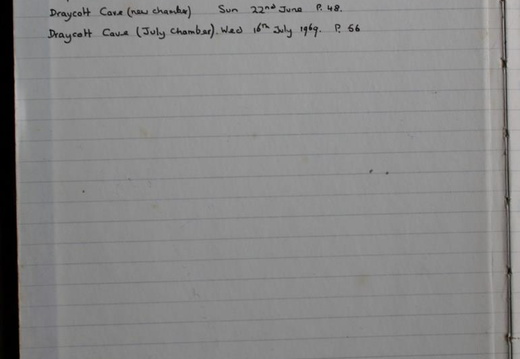 Draycott Cave (new chamber) Sun 22nd June P. 48.
Draycott Cave (July Chamber). Wed 16th July 1969. P. 56